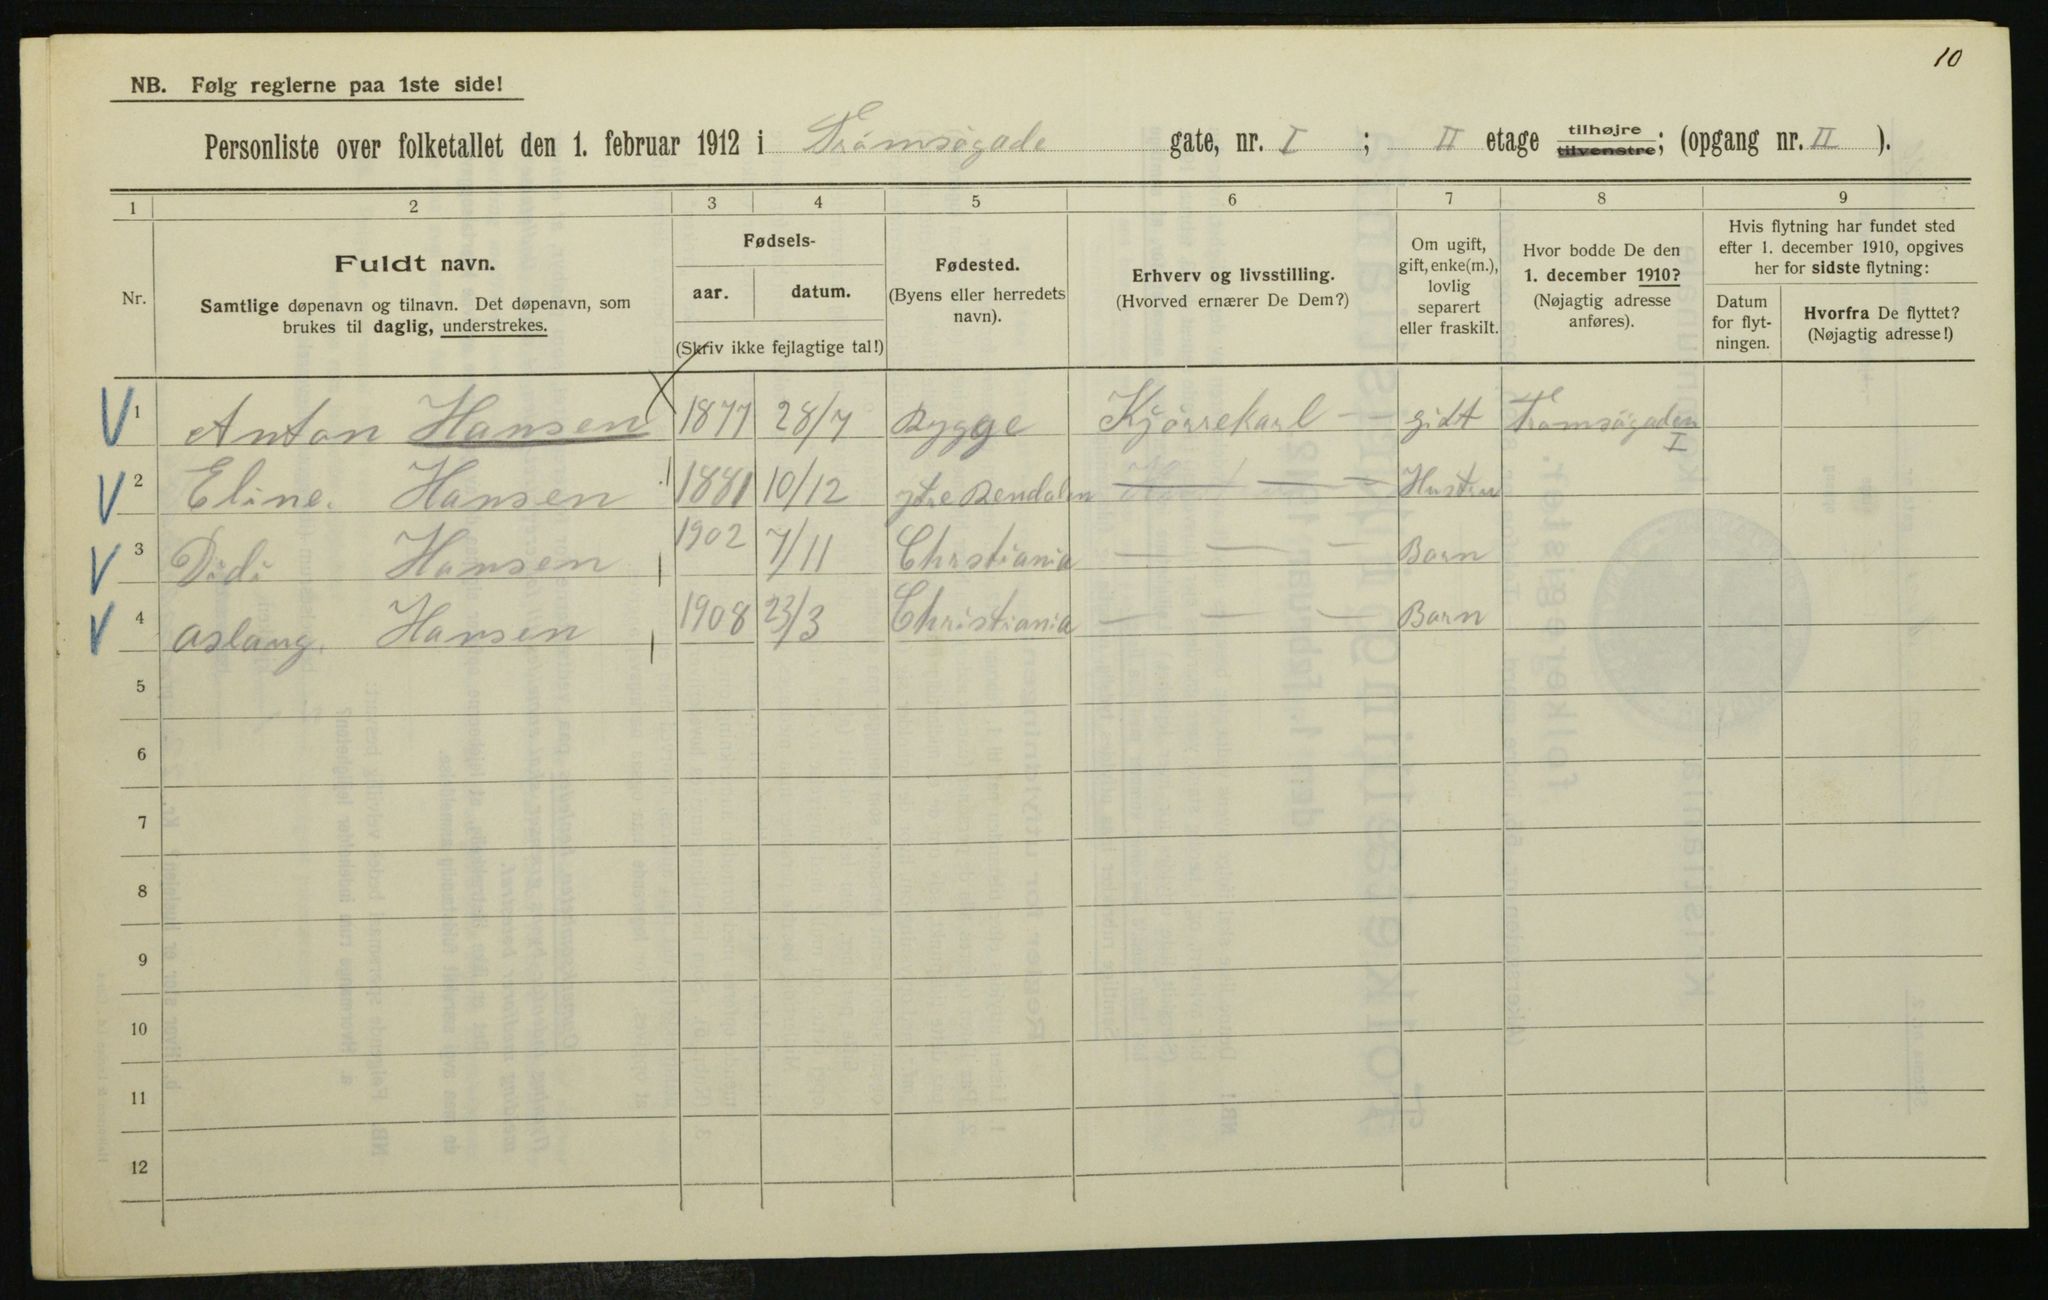 10
NB. Følg reglerne paa 1ste side!
Personliste over folketallet den 1. februar 1912 i Tromsøgade gate, nr. I ; II etage tilhøjre tilvenstre; (opgang nr. II ).
1 2 3 4 5 6 7 8 9
Nr.
Fuldt navn.
Samtlige døpenavn og tilnavn. Det døpenavn, som
brukes til daglig, understrekes.
Fødsels-
aar. datum.
(Skriv ikke fejlagtige tal!)
Fødested.
(Byens eller herredets
navn).
Erhverv og livsstilling.
(Hvorved ernærer De Dem?)
Om ugift,
gift, enke(m.),
lovlig
separert
eller fraskilt.
Hvor bodde De den
1. december 1910?
(Nøjagtig adresse
anføres).
Hvis flytning har fundet sted
efter 1. december 1910, opgives
her for sidste flytning:
Datum
for flyt-
ningen.
Hvorfra De flyttet?
(Nøjagtig adresse!)
1 Anton Hansen 1877 28/7 Rygge Kjørrekarl gidt Tromsøgaden I
2 Eline. Hansen 1881 10/12 ytre Rendalen — — — Hustru
3 Didi Hansen 1902 7/11 Chrstiania — — — Barn
4 aslang. Hansen 1908 23/3 Christiania — — — Barn
5
6
7
8
9
10
11
12